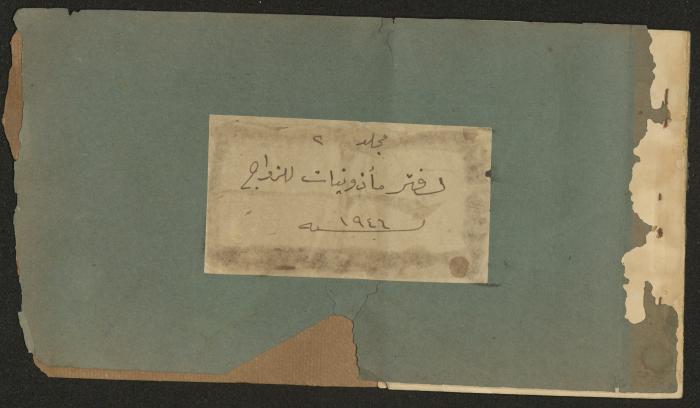 مجلد ٢
دفتر مأذونيات للزواج
لسنه ١٩٤٦